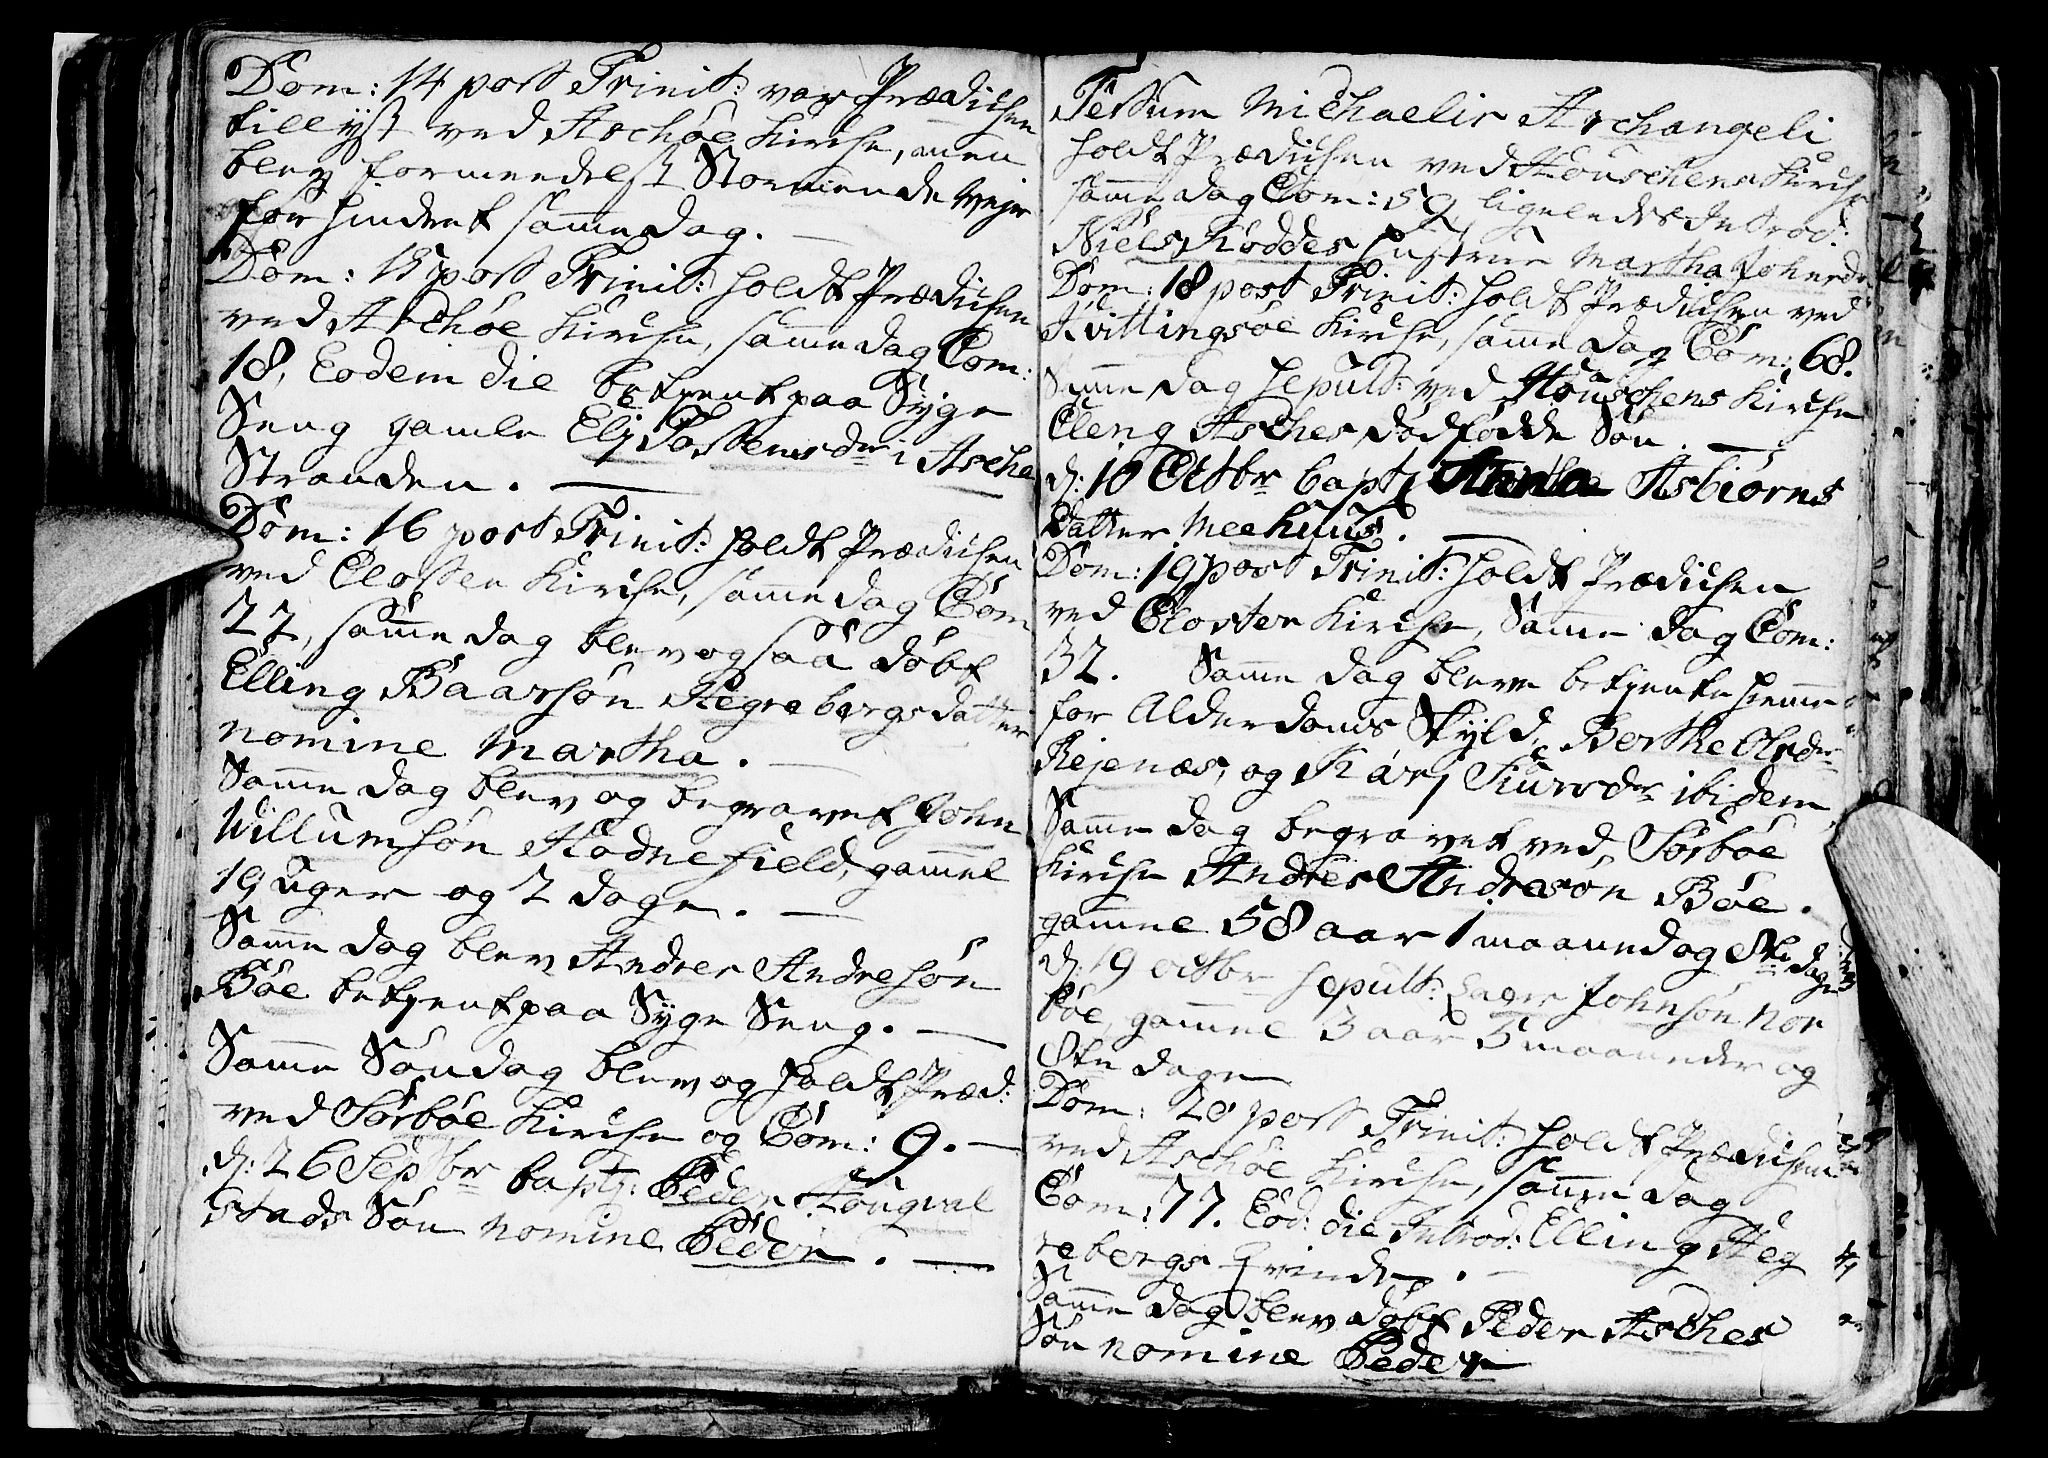 Dom: 14 post Trinit: var Prædichen
tillyst ved Aschöe Kirche, men
blev formedelst Stormende Vejr
for hindret samme dag.
Dom: 15 post Trinit: holdt Prædichen
ved Aschöe Kirche, samme dag Com:
18, Eodem die betjent paa Syge
Seng gamle Elj Tostensdr i Asche
Stranden.
Dom: 16 post Trinit: holdt Prædichen
ved Closter Kirche, samme dag Com
22, samme dag blev ogsaa döbt
Elling Baarsön Hegrebergs datter
nomine Martha.
Samme dag blev og begravet John
Willumsön Hodnefield, gammel
19 Uger og 2 dage.
Samme dag blev Andres Andresön
Böe betjent paa Syge Seng.
Samme Söndag blev og holdt Præd:
ved Sörböe Kirche og Com: 9.
d: 26 Septbr bapt: Peder
stads Sön nomine Peder.
Festum Michaelis Archangeli
holdt Prædichen ved Houschens Kirche
samme dag Com: 59, ligeledes Introd:
Niels Hoddes hustrue Martha Johnsdr.
Dom: 18 post Trinit: holdt Prædichen ved
Hvittingsöe Kirche, samme dag Com: 68.
Samme dag sepult: ved Houschens Kirche
Eleng Asches dödfödde Sön.
d: 10 Octbr bapt: Anna Asbiörns
datter Meehuus.
Dom: 19 post Trinit: holdt Prædichen
ved Closter Kirche, Samme dag Com:
32. Samme dag bleve betjente hiemme
for Alderdoms Skyld, Berthe Olsdr
Rejenæs, og Karj Siursdr ibidem
Samme dag begravet ved Sörböe
Kirche Andres Andresön Böe.
gamme 58 aar 1 maaned og 8te dage
d: 19 octbr sepult: Johnsön Nor
böe, gamme 3 aar 3 maaneder og
8te dage
Dom: 20 post Trinit: holdt Prædichen
ved Aschöe Kirche, samme dag
Com: 77. Eod: die Introd: Elling Heg
rebergs Qvinde.
Samme dag blev döbt Peder Asches
Sön nomine Peder